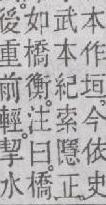 本作垣今依史
武本紀索隱正
如橋衡注曰橋
後重前輕挈水